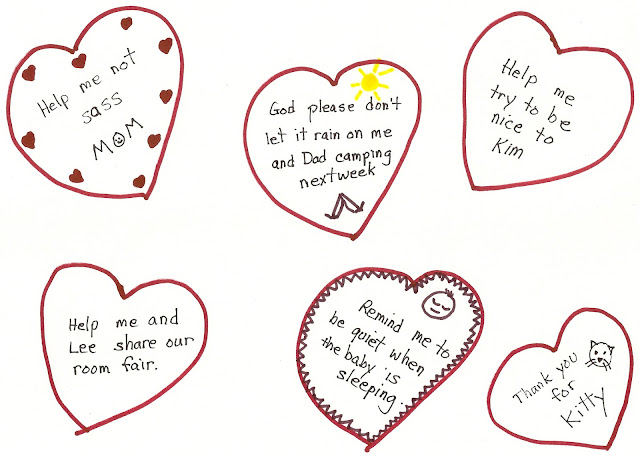 Help me not
sass
MOM
God please don't
let it rain on me
and Dad camping
next week
Help me
try to be
nice to
Kim
Help me and
Lee share our
room fair.
Remind me to
be quiet when
the baby is
sleeping.
Thank you
for
Kitty